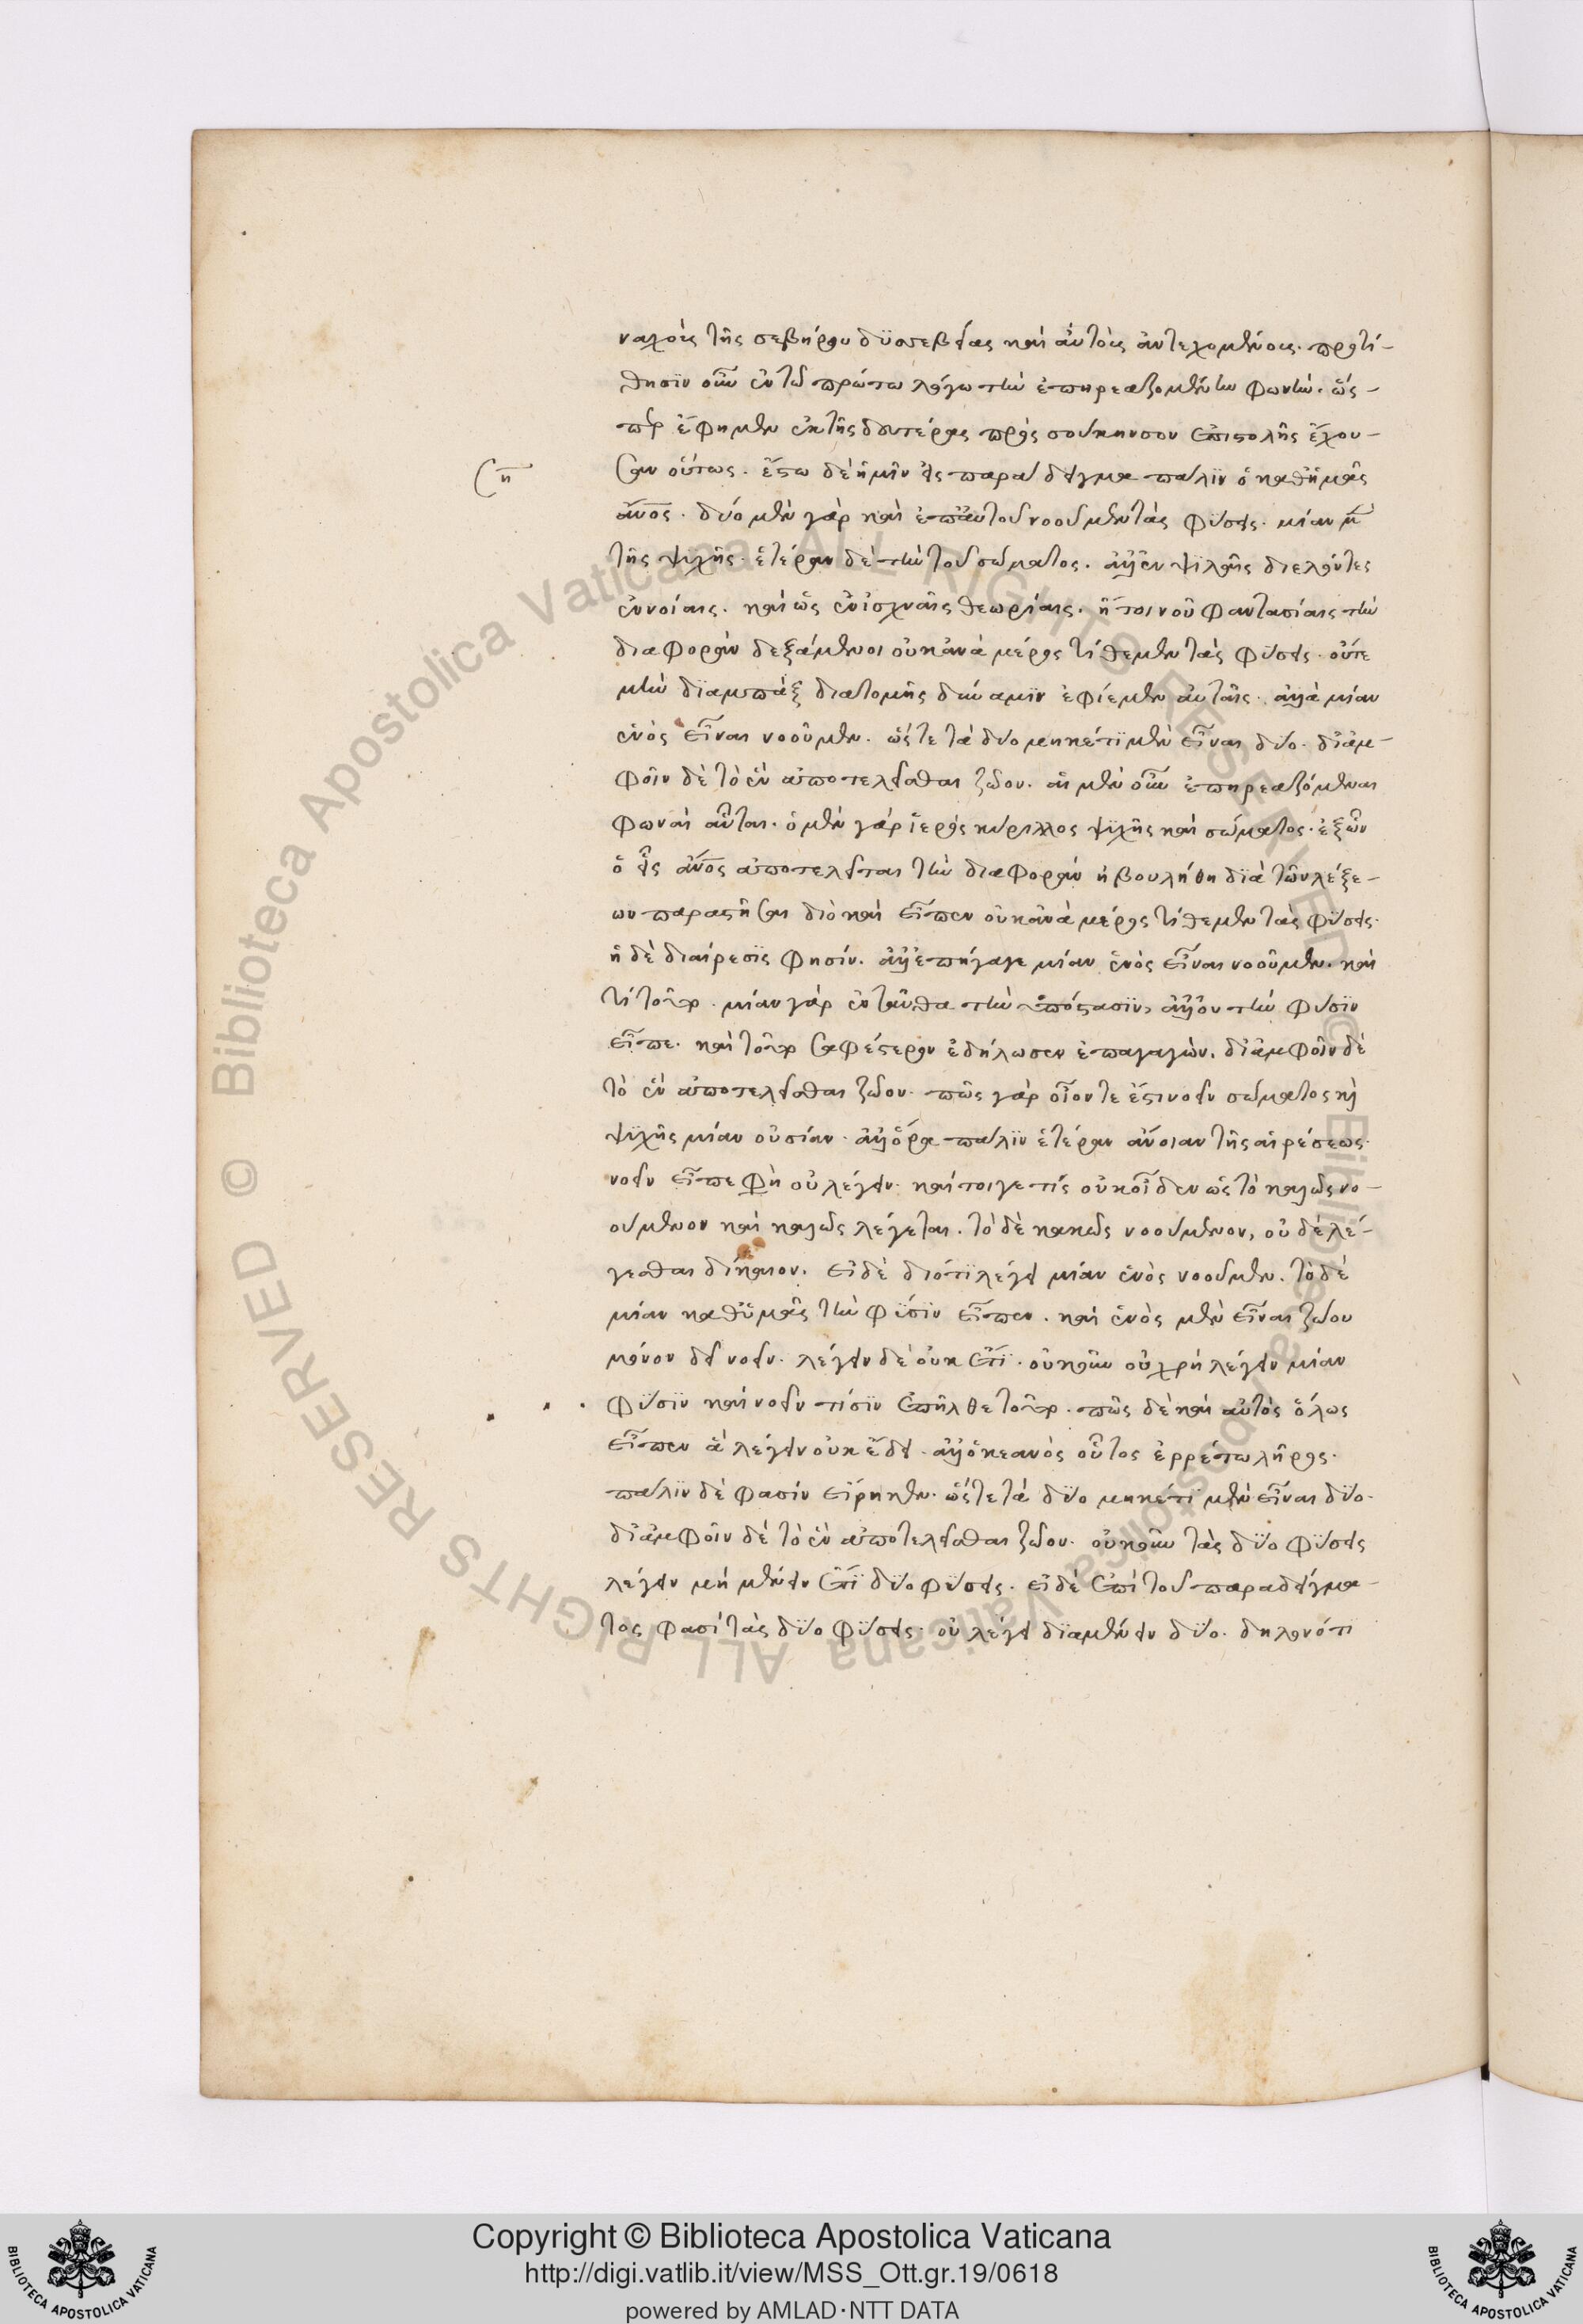 ναχοῖς τῆς σεβήρου δυσσεβείας καὶ αὐτοῖς ἀντεχομένοις. προτί-
θησϊν οὖν ἐν τῶ πρώτω λόγω τὴν ἐπηρεαζομένην φωνὴν. ὥσ-
περ ἔφημεν ἐκ τῆς δευτέρας πρὸς σούκηνσον ἐπιστολῆς ἔχου-
σαν οὕτως. ἔστω δὲ ἡμῖν εἰς παράδειγμα πάλϊν ὁ καθἡμᾶς
ἄνος. δύο μὲν γὰρ καὶ ἐπαὐτοῦ νοοῦμεν τὰς φύσεις. μίαν μὲν
τῆς ψυχῆς. ἑτέραν δὲ τὴν τοῦ σώματος. ἀλλ' ἐν ψιλαῖς διελόντες
ἐννοίαις. καὶ ὡς ἐν ἰσχναῖς θεωρίαις. ἤτοι νοῦ φαντασίαις τὴν
διαφορὰν δεξάμενοι οὐκ ἀνὰ μέρος τίθεμεν τὰς φύσεις. οὔτε
μὴν διαμπὰξ διατομῆς δύναμϊν ἐφίεμεν αὐταῖς. ἀλλὰ μίαν
ἑνὸς εἶναι νοοῦμεν. ὥστε τὰ δύο μηκέτι μὲν εἶναι δύο. δι' ἀμ-
φοῖν δὲ τὸ ἓν ἀποτελεῖσθαι ζῶον. αἱ μὲν οὖν ἐπηρεαζόμεναι
φωναὶ αὗται. ὁ μὲν γὰρ ἱερὸς κύριλλος ψυχῆς καὶ σώματος. ἐξ ὧν
ὁ εἷς ἄνος ἀποτελεῖται τὴν διαφορὰν ἠβουλήθη διὰ τῶν λέξε-
ων παραστῆσαι διὸ καὶ εἶπεν οὐκ ἀνὰ μέρος τίθεμεν τὰς φύσεις.
ἡ δὲ διαίρεσϊς φησίν. ἀλλ' ἐπήγαγε μίαν ἑνὸς εἶναι νοοῦμεν. καὶ
τί τοῦτο. μίαν γὰρ ἐνταῦθα τὴν ὑπόστασϊν, ἀλλ' οὐ τὴν φύσϊν
εἶπε. καὶ τοῦτο σαφέστερον ἐδήλωσεν ἐπαγαγὼν. δι' ἀμφοῖν δὲ
τὸ ἓν ἀποτελεῖσθαι ζῶον. πῶς γὰρ οἷόν τε ἐστι νοεῖν σώματος καὶ
ψυχῆς μίαν οὐσίαν. ἀλλ' ὅρα πάλϊν ἑτέραν ἄνοιαν τῆς αἱρέσεως.
νοεῖν εἶπε φὴ οὐ λέγειν. καί τοιγε τίς οὐκ οἶδεν ὡς τὸ καλῶς νο-
ούμενον καὶ καλῶς λέγεται. τὸ δὲ κακῶς νοούμενον, οὐδὲ λέ-
γεσθαι δίκαιον. εἰ δὲ διότι λέγει μίαν ἑνὸς νοοῦμεν. τὸ δὲ
μίαν καθ' ὑμᾶς τὴν φύσϊν εἶπεν. καὶ ἑνὸς μὲν εἶναι ζώου
μόνον δεῖ νοεῖν. λέγειν δὲ οὐκ ἔτι. οὐκοῦν οὐ χρὴ λέγειν μίαν
φύσϊν καὶ νοεῖν τίσϊν ἐπῆλθε τοῦτο. πῶς δὲ καὶ αὐτὸς ὅλως
εἶπεν ἃ λέγειν οὐκ ἔδει. ἀλλ' ὠκεανὸς οὗτος ἐρρέτω λῆρος.
πάλϊν δὲ φασὶν εἴρηκεν. ὥστε τὰ δύο μηκέτι μὲν εἶναι δύο.
δι' ἀμφοῖν δὲ τὸ ἓν ἀποτελεῖσθαι ζῶον. οὐκοῦν τὰς δύο φύσεις
λέγειν μὴ μένειν ἔτι δύο φύσεις. εἰ δὲ ἐπὶ τοῦ παραδείγμα-
τος φασὶ τὰς δύο φύσεις. οὐ λέγει διαμένειν δύο. δηλονότι
Copyright © Biblioteca Apostolica Vaticana
http://digi.vatlib.it/view/MSS_Ott.gr.19/0618
powered by AMLAD·NTT DATA